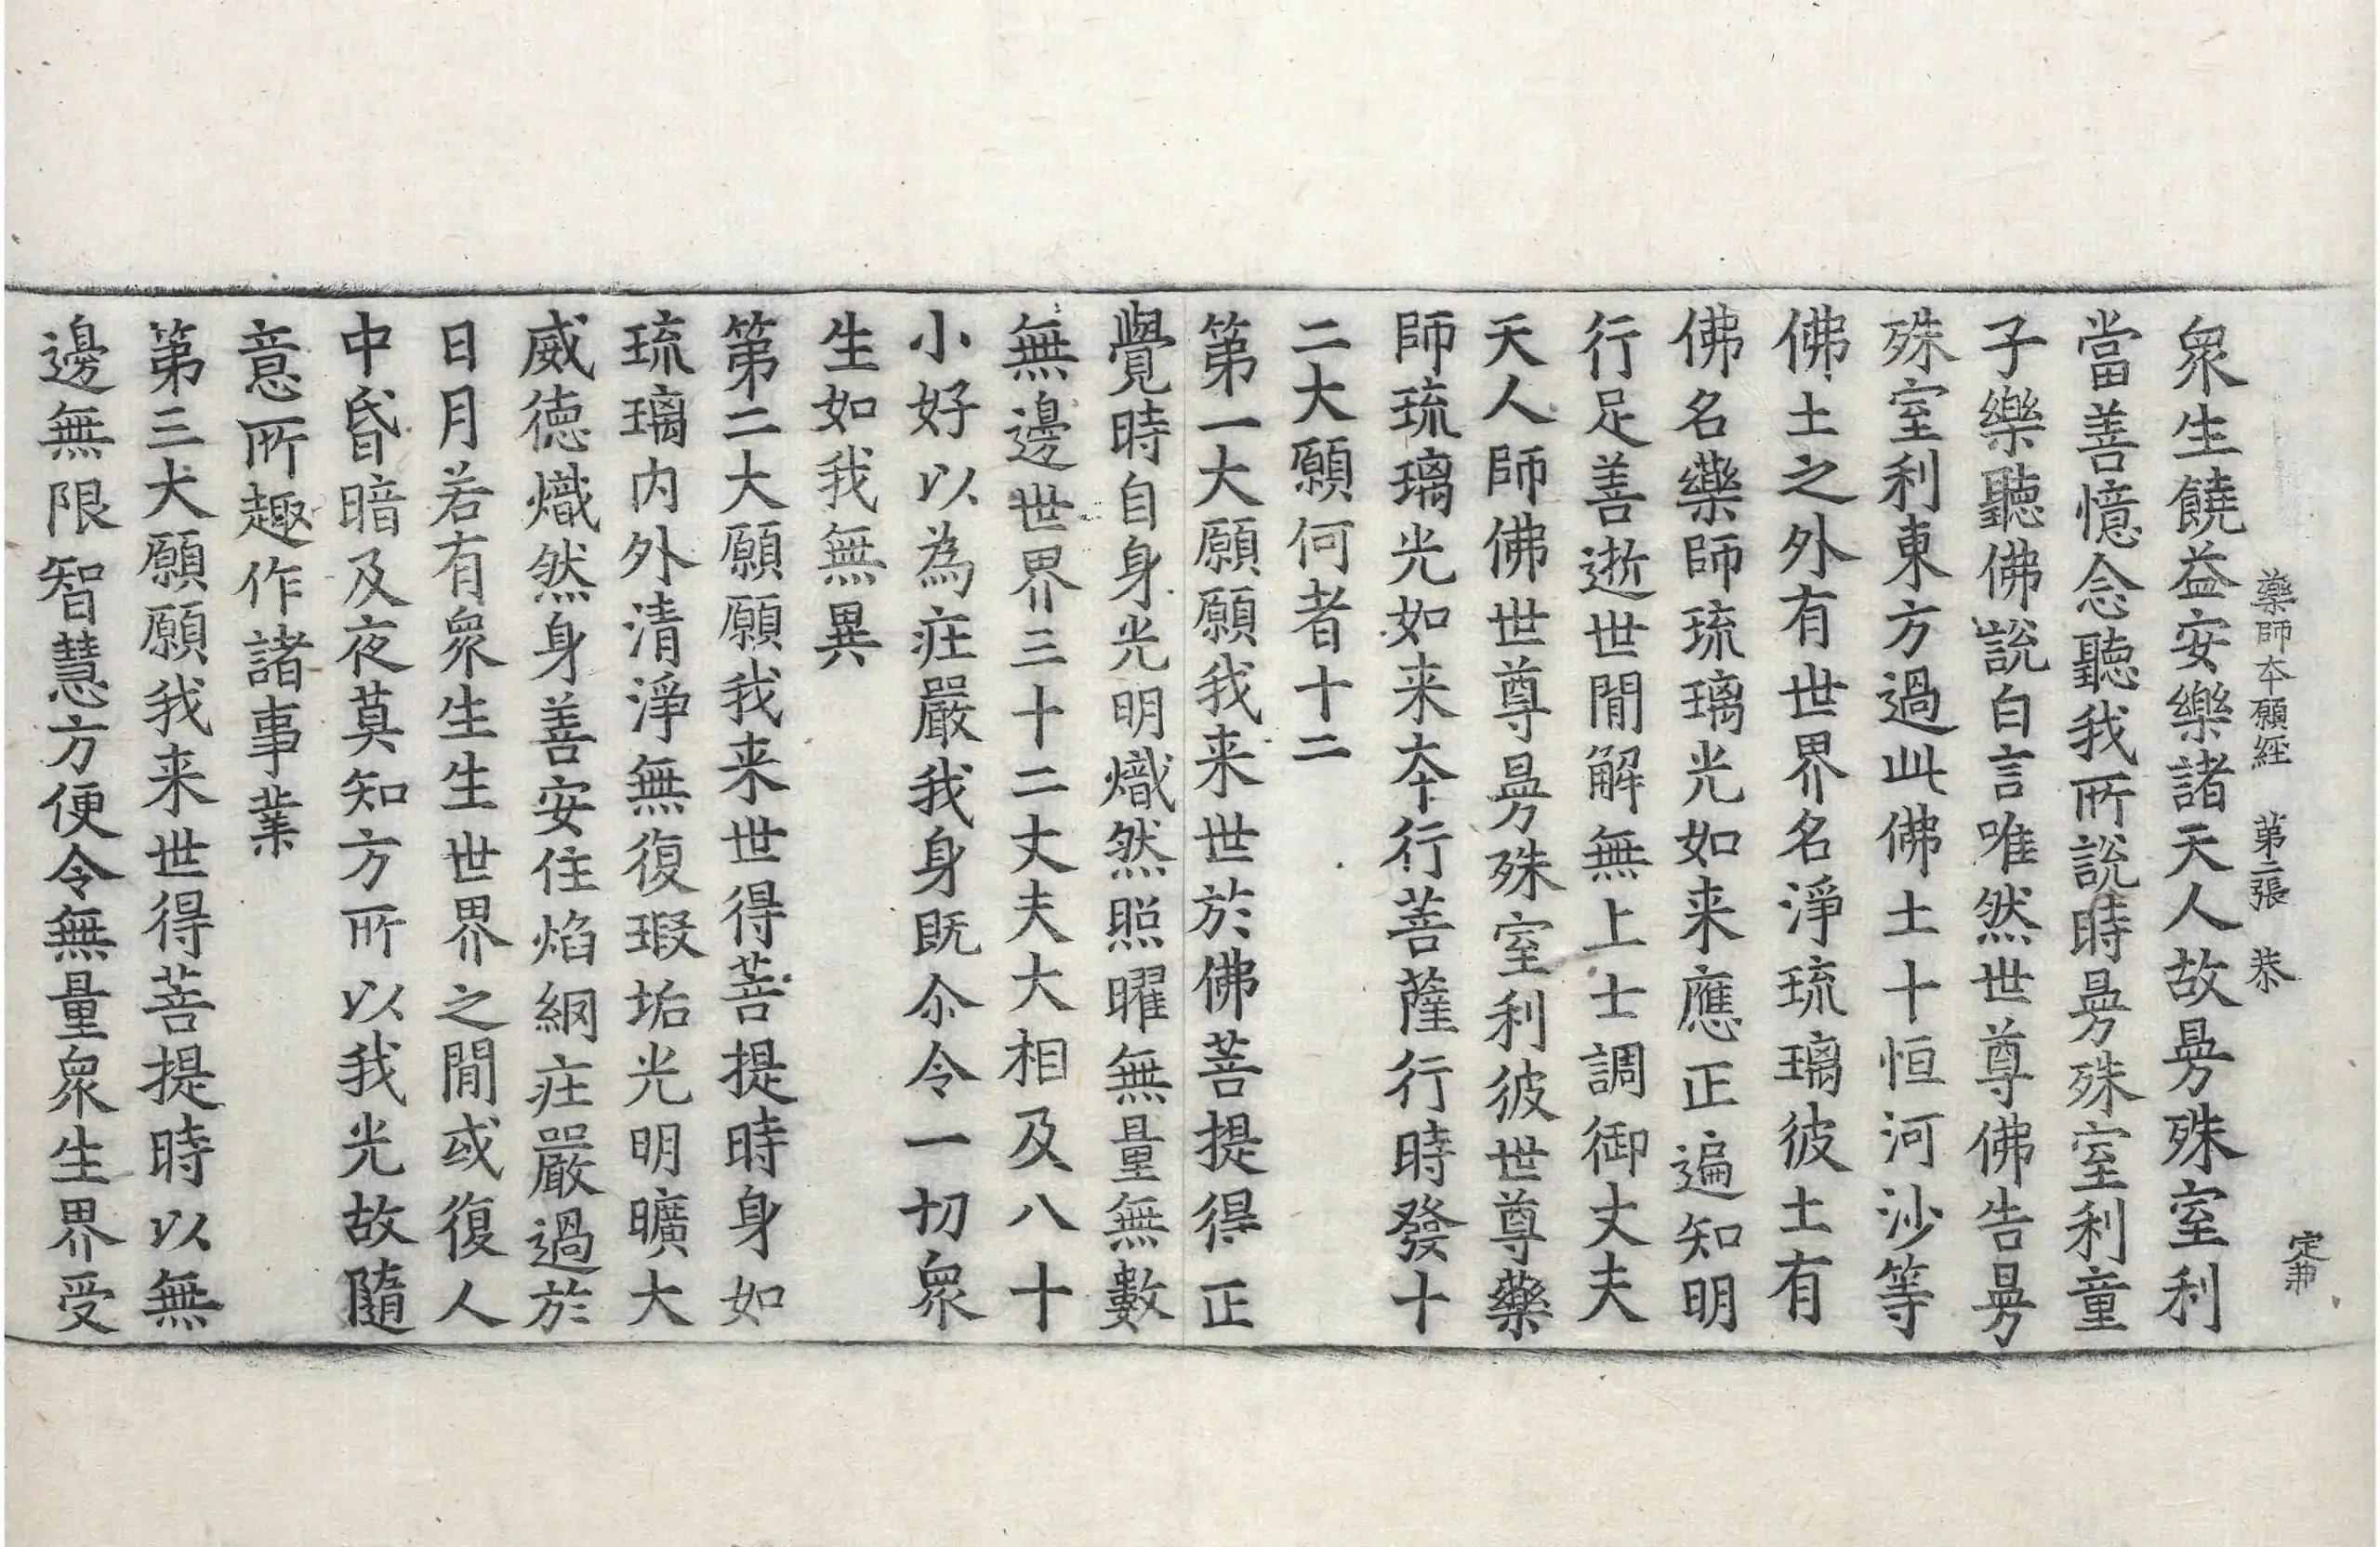 藥師本願經　第二張　恭
定冊
衆生饒益安樂諸天人故曼殊室利
當善憶念聽我所說時曼殊室利童
子樂聽佛說白言唯然世尊佛告曼
殊室利東方過此佛土十恒河沙等
佛土之外有世界名淨琉璃彼土有
佛名藥師琉璃光如来應正遍知明
行足善逝世間解無上士調御丈夫
天人師佛世尊曼殊室利彼世尊藥
師琉璃光如来本行菩薩行時發十
二大願何者十二
第一大願願我来世於佛菩提得正
覺時自身光明熾然照曜無量無數
無邊世界三十二丈夫大相及八十
小好以為莊嚴我身既尒令一切衆
生如我無異
第二大願願我来世得菩提時身如
琉璃内外清淨無復瑕垢光明曠大
威德熾然身善安住焰網莊嚴過於
日月若有衆生生世界之間或復人
中昏暗及夜莫知方所以我光故隨
意所趣作諸事業
第三大願願我来世得菩提時以無
邊無限智慧方便令無量衆生界受